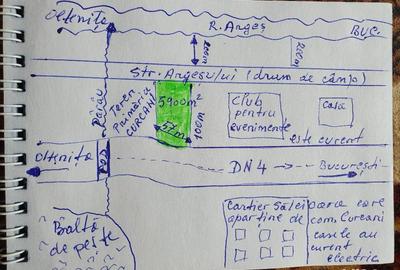 Oltenița
R. Argeș
BUC.
200m
200m
Str. Argeșului (drum de câmp)
Pârâu
Teren
Primăria
CURCANI
5900m²
57m
100m
Club
pentru
evenimente
casa
este curent
Oltenița
POD
DN4
București
Baltă
de pește
Cartier Sălcii parce care
aparține de com. Curcani
casele au
curent
electric